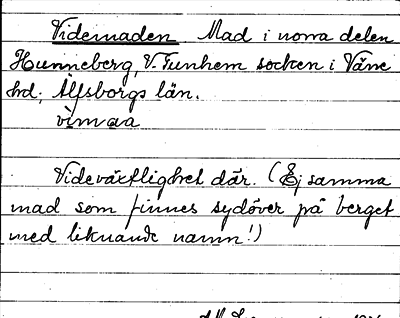 Videmaden Mad i norra delen
Hunneberg, V. Tunhem socken i Väne
hd; Älfsborgs län.
vimaa
Videväxtlighet där. (Ej samma
mad som finnes sydöver på berget
med liknande namn!)